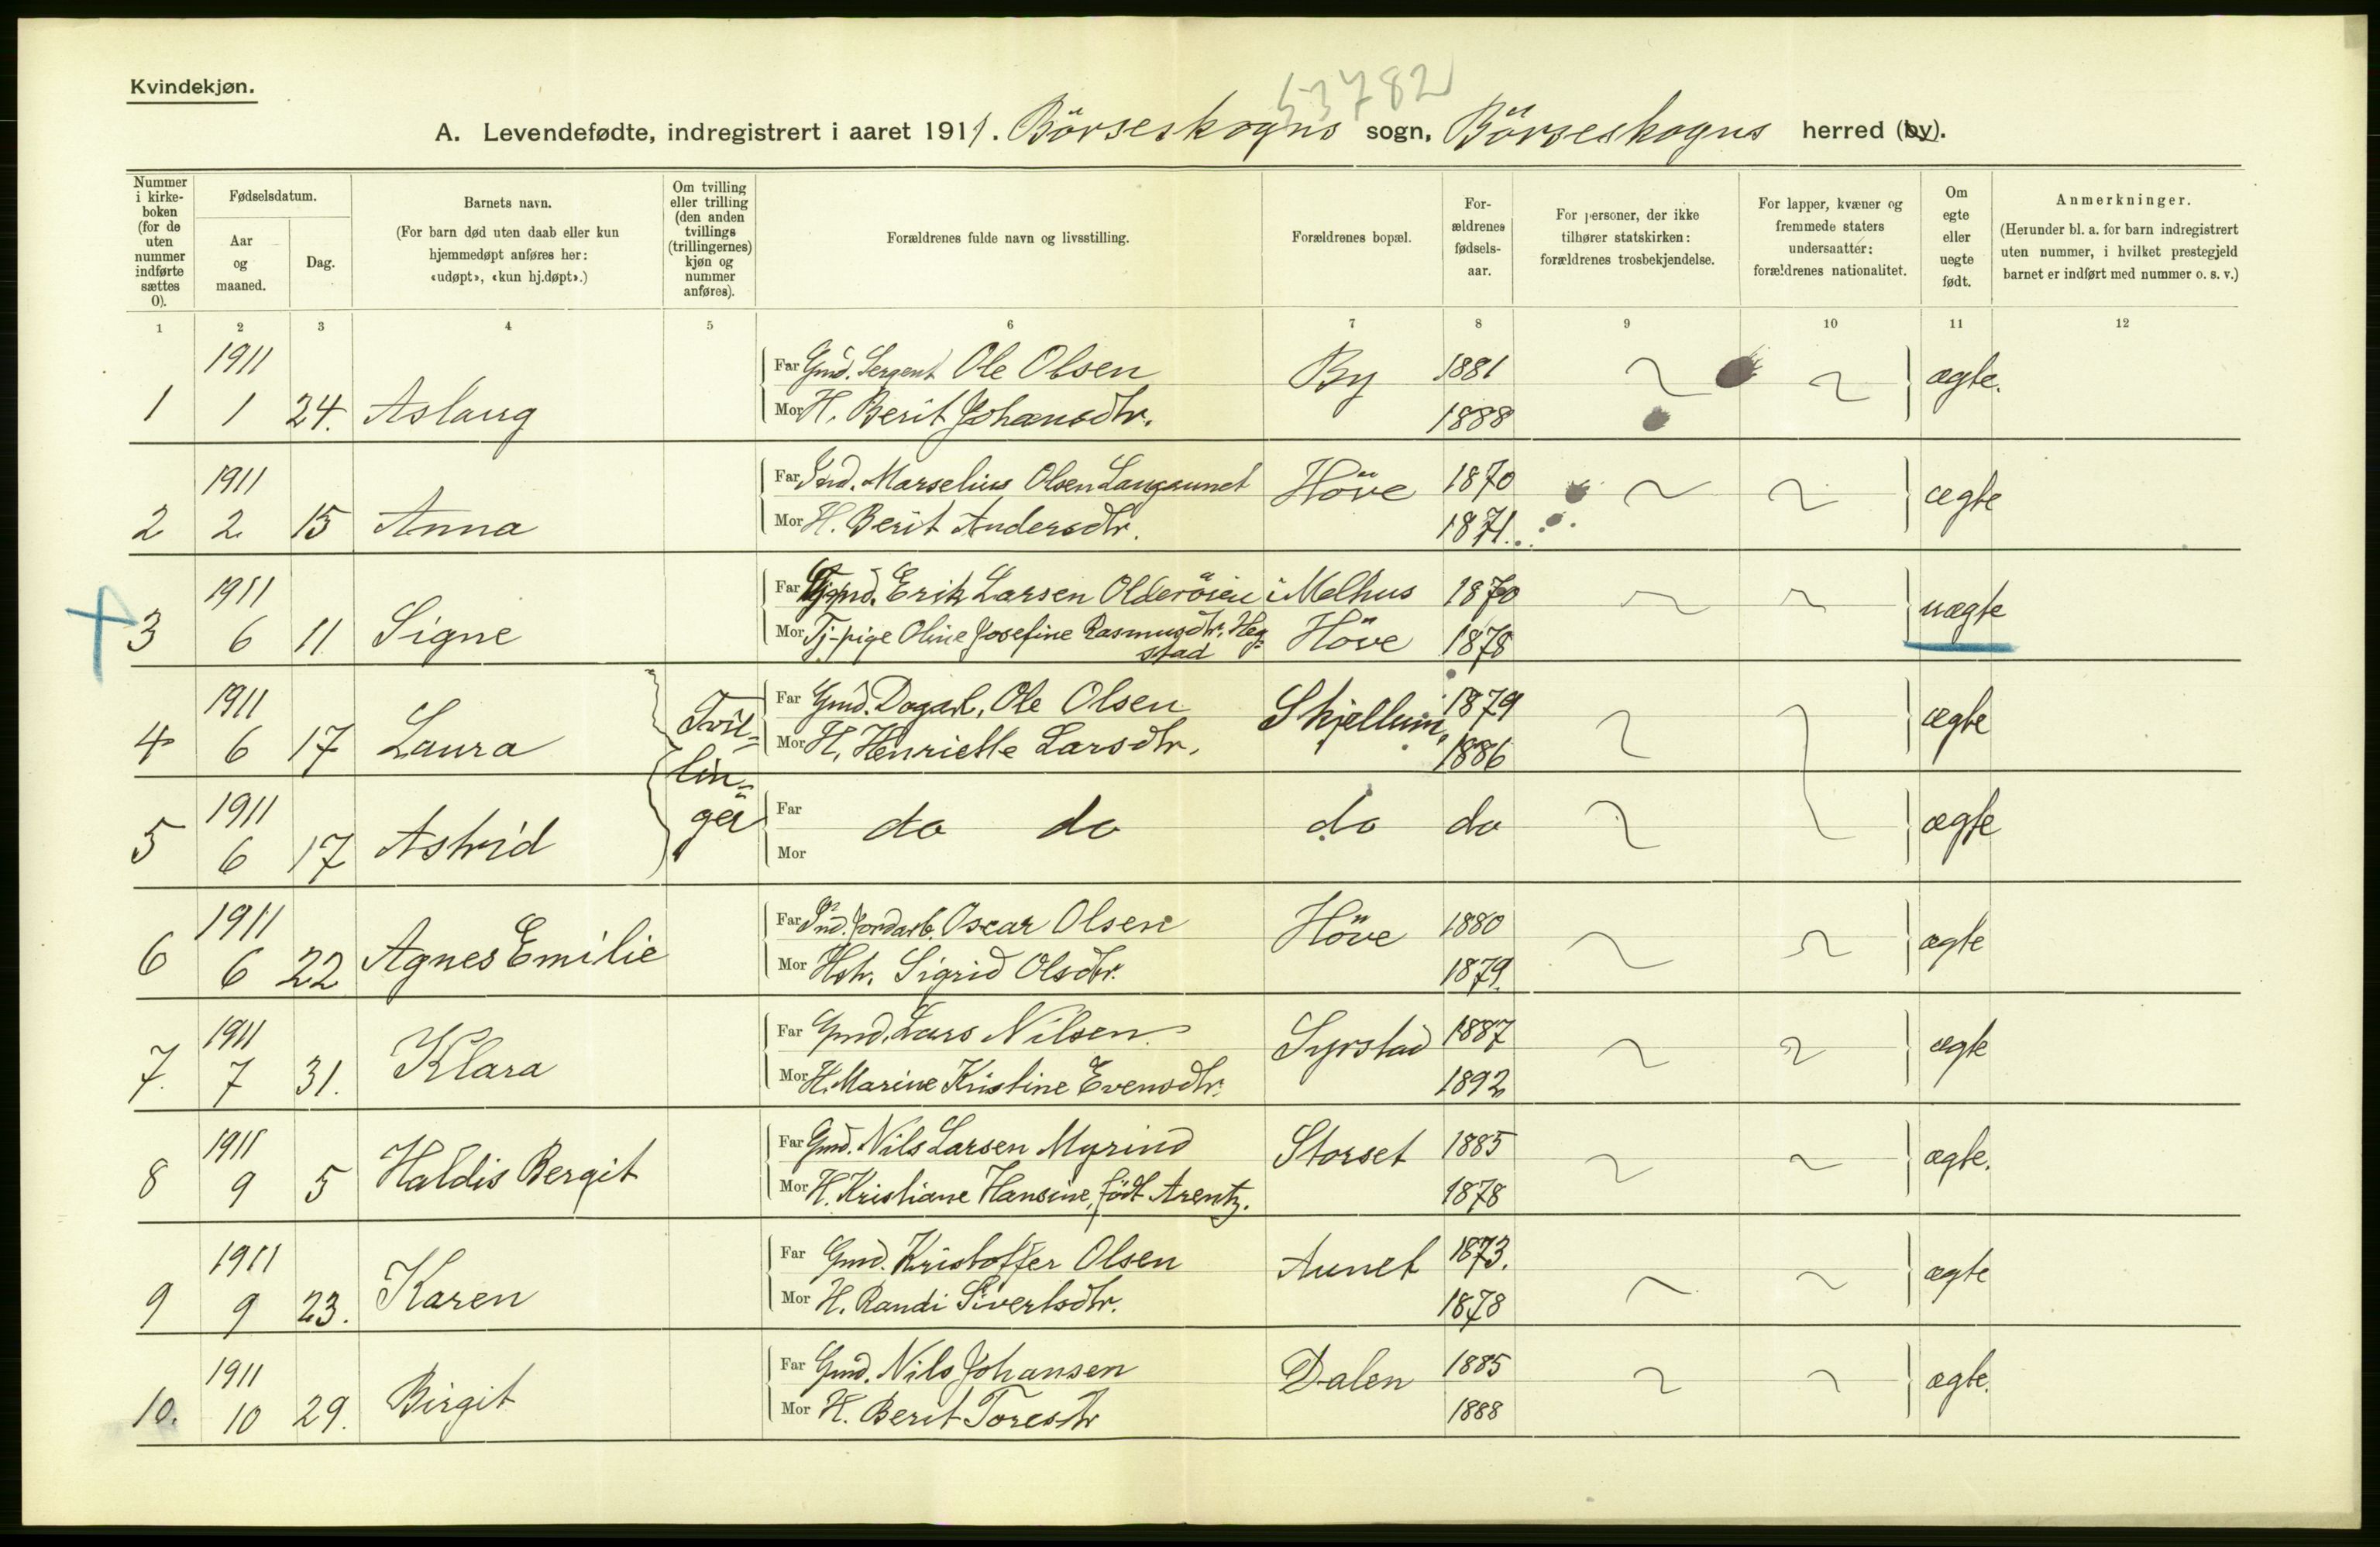 Kvindekjøn.
53782
A. Levendefødte, indregistrert i aaret 1911. Börseskogns sogn, Börseskogns herred (by).
Nummer i kirke-boken (for de uten nummer indførte sættes 0).
Fødselsdatum.
Aar og maaned.
Dag.
Barnets navn.
(For barn død uten daab eller kun hjemmedøpt anføres her: «udøpt», «kun hj.døpt».)
Om tvilling eller trilling (den anden tvillings (trillingernes) kjøn og nummer anføres).
Forældrenes fulde navn og livsstilling.
Forældrenes bopæl.
For-ældrenes fødsels-aar.
For personer, der ikke tilhører statskirken: forældrenes trosbekjendelse.
For lapper, kvæner og fremmede staters undersaatter: forældrenes nationalitet.
Om egte eller uegte født.
Anmerkninger.
(Herunder bl. a. for barn indregistrert uten nummer, i hvilket prestegjeld barnet er indført med nummer o. s. v.)
1 2 3 4 5 6 7 8 9 10 11 12
1911 Far Gmd. Sergent Ole Olsen By 1881 ægte.
1 1 24. Aslaug Mor H. Berit Johansdtr. 1888
1911 Far Ind. Marselius Olsen Langaunet Höve 1870 ægte
2 2 15 Anna Mor H. Berit Andersdtr. 1871.
1911 Far Erik Larsen Olderöien i Melhus 1870 uægte
3 6 11 Signe Mor Tj-pige Oline Josefine Rasmusdtr. Heg= Höve 1878
stad
1911 Tvil= Far Gmd. Dagarb. Ole Olsen Skjellum, 1879 ægte
4 6 17 Laura Mor H. Henriette Larsdtr. 1886
lin=
1911 ger Far do do do do ægte
5 6 17 Astrid Mor
1911 Far Ind. Jordarb. Oscar Olsen Höve 1880 ægte
6 6 22 Agnes Emilie Mor Hstr. Sigrid Olsdtr. 1879.
1911 Far Gmd. Lars Nilsen Syrstad 1887 ægte
7. 7 31. Klara Mor H. Marine Kristine Evensdtr. 1892
1911 Far Gmd. Nils Larsen Myrind Storset 1885 ægte.
8 9 5 Haldis Bergit Mor H. Kristiane Hansine, född Arentz. 1878
1911 Far Gmd. Kristoffer Olsen Aunet 1873. ægte
9 9 23. Karen Mor H. Randi Sivertsdtr. 1878
1911 Far Gmd. Nils Johansen Dalen 1885 ægte.
10. 10 29. Birgit Mor H. Berit Toresdtr 1888